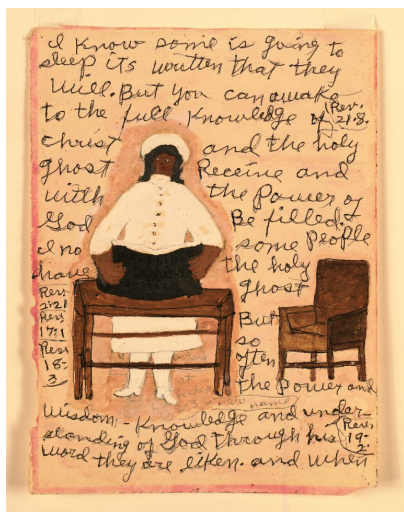 I Know some is going to
sleep its written that they
will. But you can awake
to the full Knowledge of Rev. 21.8.
Christ and the holy
ghost Receive and
with the Power of
God Be filled.
I no some People
have the holy
Rev 2:21 ghost
Rev 17:1 But
Rev 18:3 so
often
the Power and
wisdom - Knowledge and under-
standing of God through his Rev 19:2
word they are liken. and when